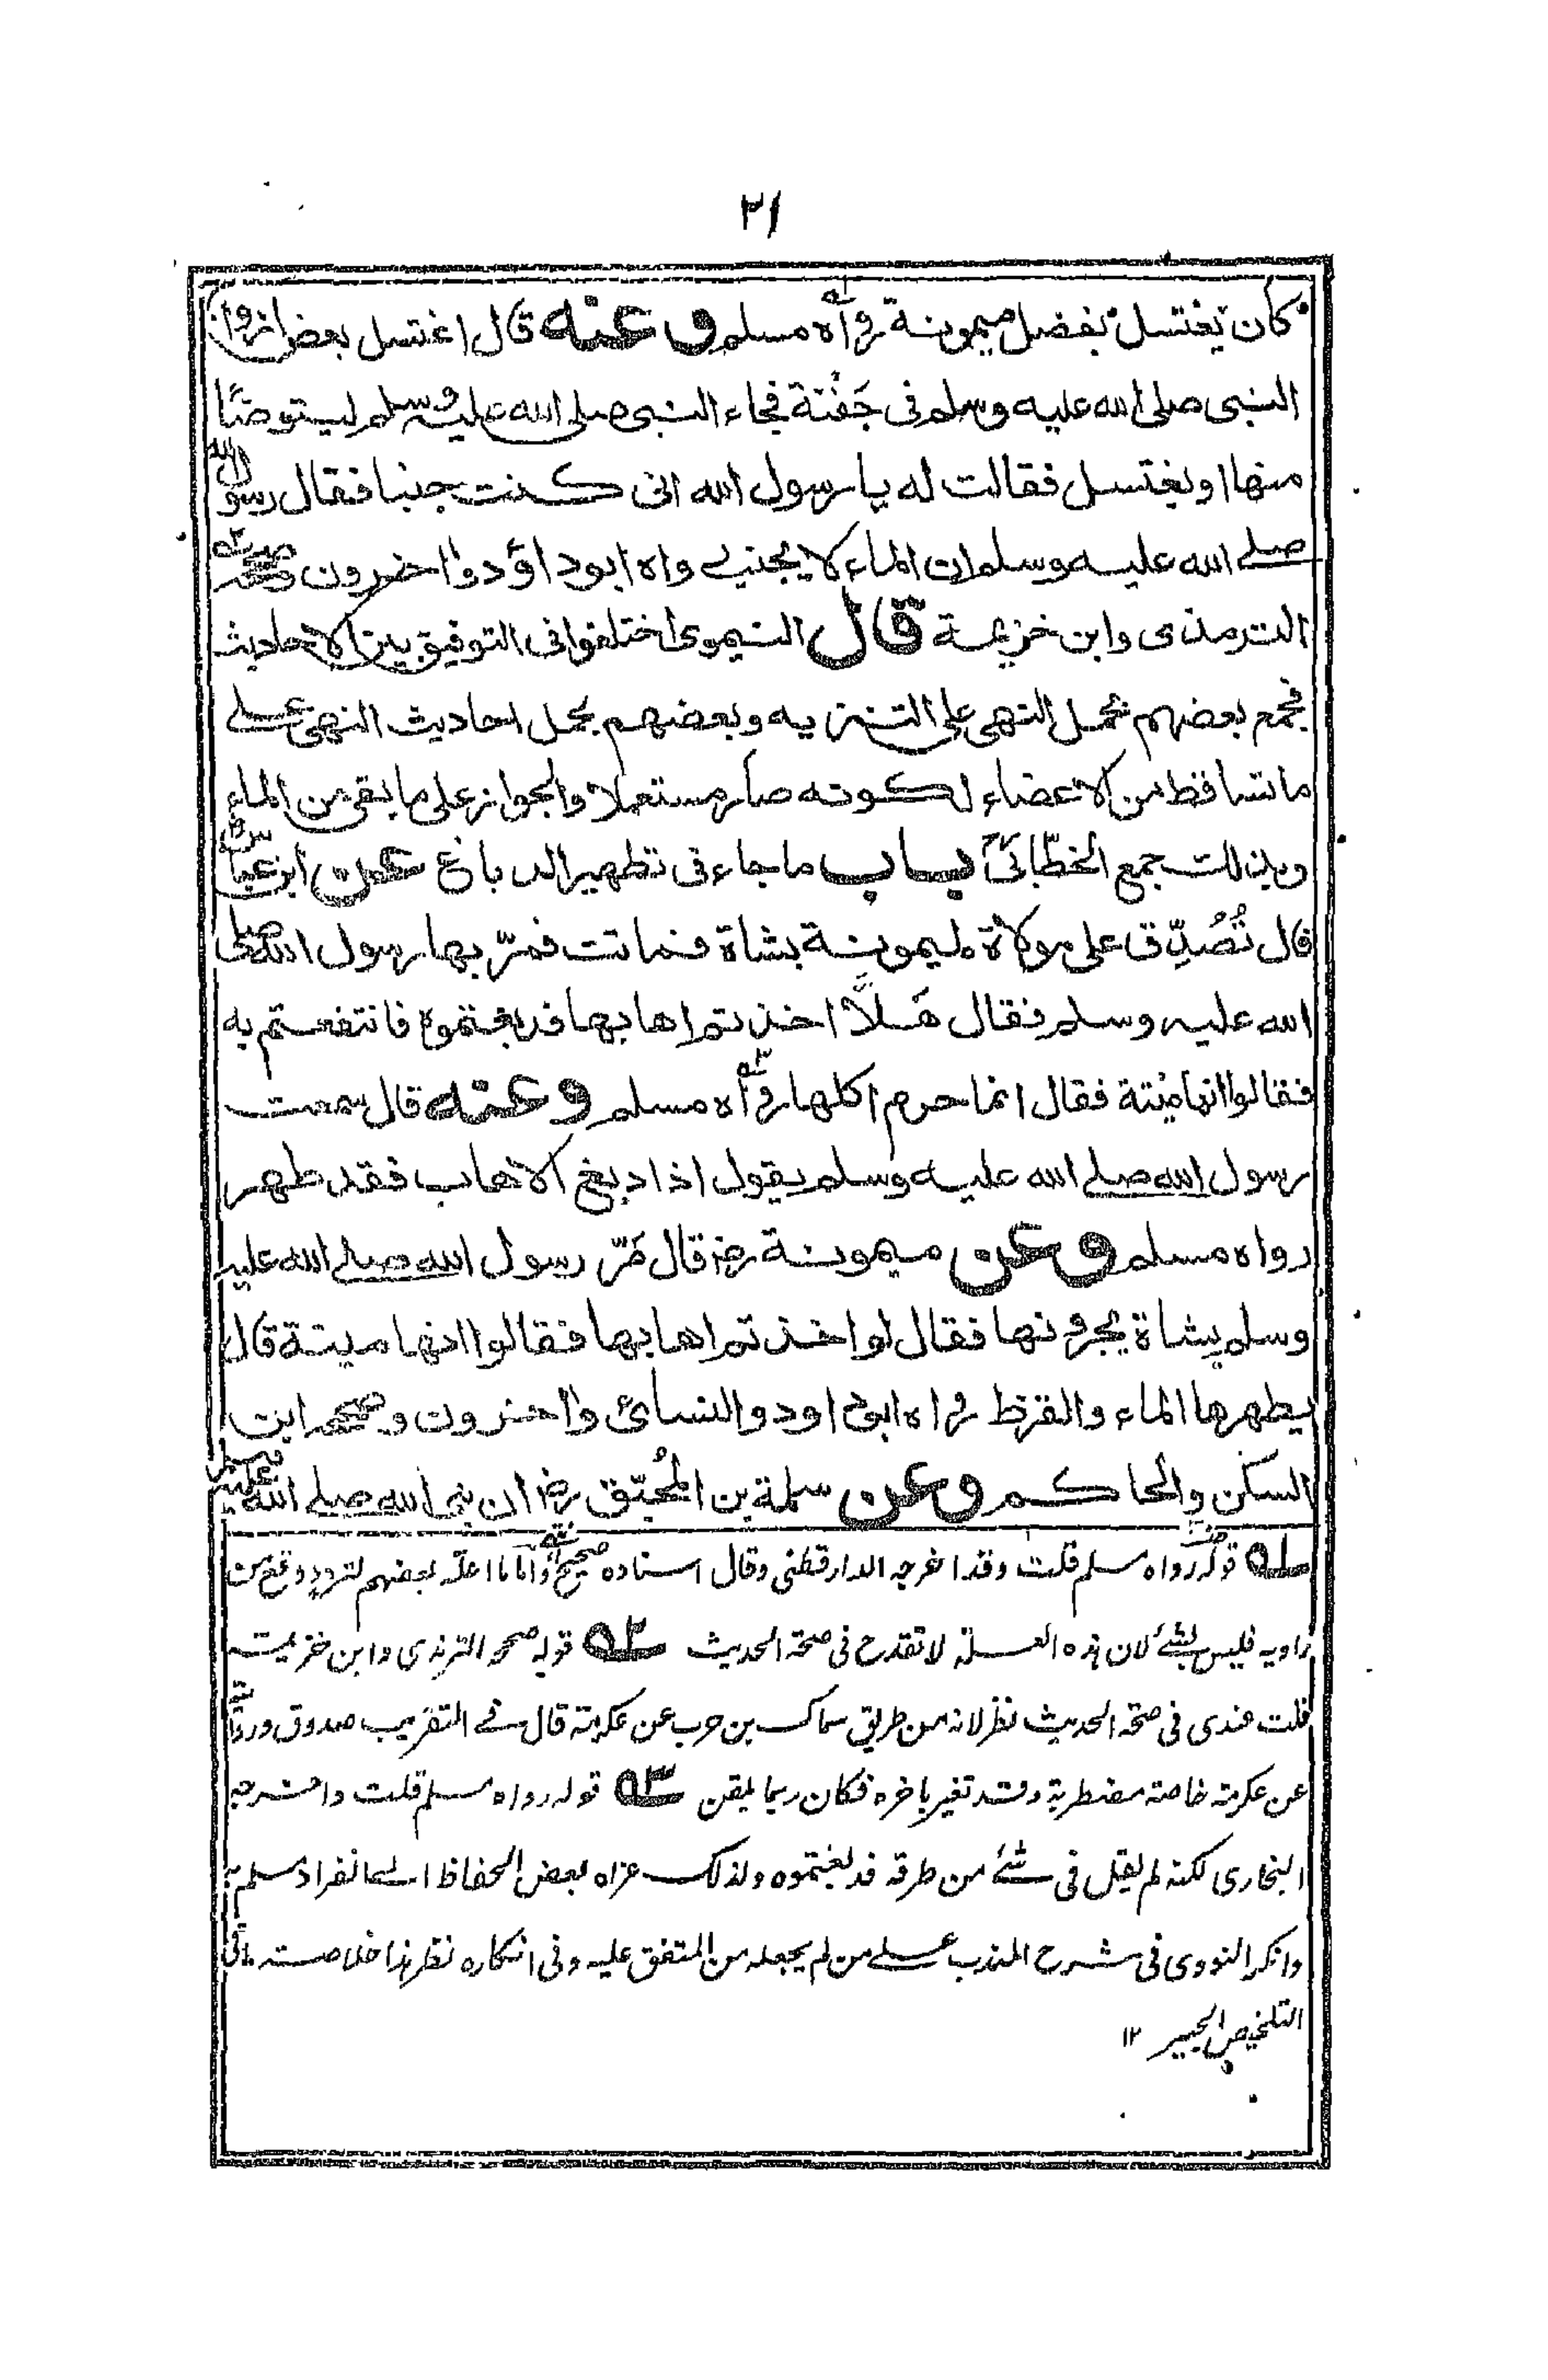 ٢١
كان يغتسل بفضل ميمونة رواه مسلم وعنه قال اغتسل بعض ازواج
النبى صلى الله عليه وسلم فى جَفْنَة فجاء النبى صلى الله عليه وسلم ليتوضأ
منها او يغتسل فقالت له يا رسول الله انى كنت جنبا فقال رسول الله
صلے الله عليه وسلم ان الماء لا يجنب رواه ابوداؤد واٰخرون وصححه
الترمذى وابن خزيمة قال النيموى اختلفوا فى التوفيق بين الاحاديث
فجمع بعضهم بحمل النهى على التنزيه وبعضهم بحمل احاديث النهى علے
ما تساقط من الاعضاء لكونه صار مستعملا والجواز على ما بقى من الماء
وبذلك جمع الخطّابىّ باب ما جاء فى تطهير الدباغ عن ابن عباس
قال تُصُدِّق على مولاة لميمونة بشاة فماتت فمرّ بها رسول الله صلى
الله عليه وسلم فقال هَلّا اخذتم اهابها فدبغتموه فانتفعتم به
فقالوا انها مَيْتة فقال انما حرم اكلها رواه مسلم وعنه قال سمعت
رسول الله صلے الله عليه وسلم يقول اذا دبغ الاهاب فقد طهر
رواه مسلم وعن ميمونة رض قال مَرّ رسول الله صلے الله عليه
وسلم بشاة يجرونها فقال لو اخذتم اهابها فقالوا انها ميتة قال
يطهرها الماء والقرظ رواه ابوداود والنسائ واٰخرون وصححه ابن
السكن والحاكم وعن سلمة بن المُحبّق رض ان نبى الله صلے الله عليه وسلم
١ قوله رواه مسلم قلت وقد اخرجه الدارقطنى وقال اسناده صحيح واما ما اعلّه بعضهم لتردد وقع من
راويه فليس بشئ لان هذه العلة لا تقدح فى صحة الحديث ٢ قوله صححه الترمذى وابن خزيمة
قلت عندى فى صحة الحديث نظر لانه من طريق سماك بن حرب عن عكرمة قال فے التقريب صدوق وروايته
عن عكرمة خاصة مضطربة وقد تغير باخره فكان ربما يلقن ٣ قوله رواه مسلم قلت واخرجه
البخارى لكنه لم يقل فى شئ من طرقه فدبغتموه ولذلك عزاه بعض الحفاظ الے انفراد مسلم به
وانكر النووى فى شرح المهذب علے من لم يجعله من المتفق عليه وفى انكاره نظر هذا خلاصة ما فى
التلخيص الحبير ١٢